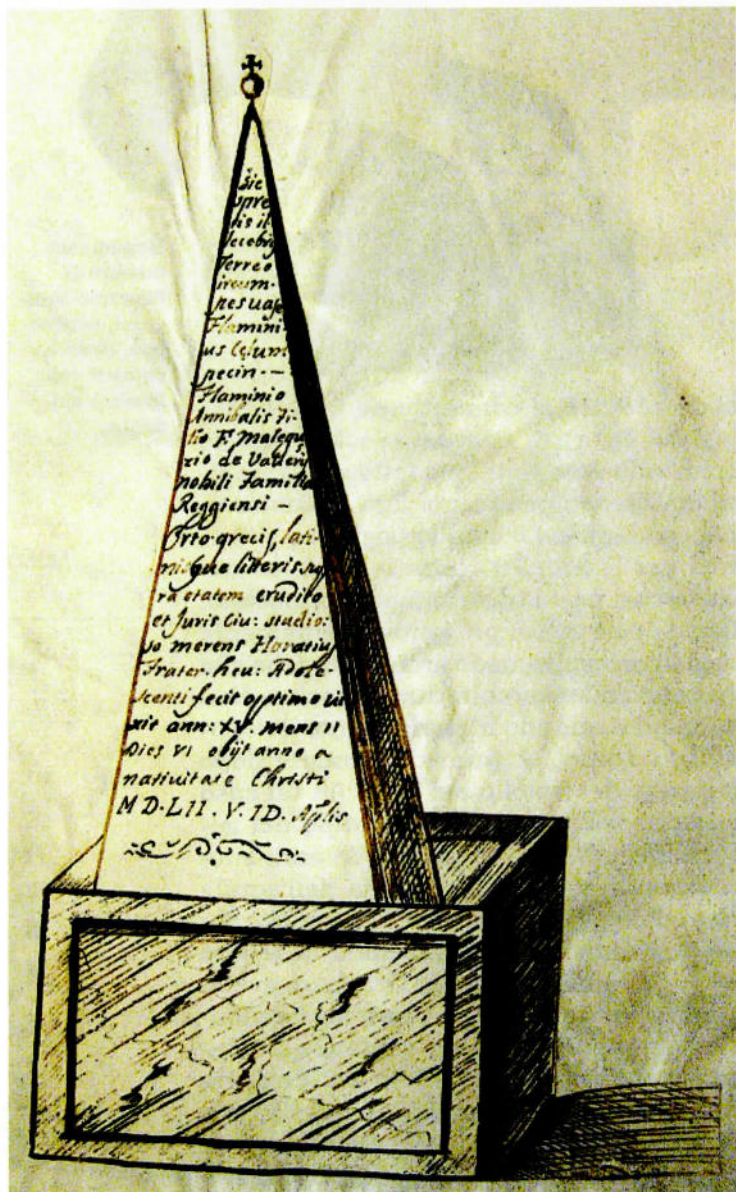 Sic
upre
tis il
lecebris
Terreo
ircum-
pes uase
Flamini-
us Celum
pecin--
Flaminio
Annibalis Fi-
lio F. Malegu
zio de Valerijs
nobili Familia
Reggiensi -
Orto grecis, lati-
nisque litteris sup
ra etatem erudito
et Juris Civ: studio:
so merens Horatius
Frater. heu: Adole-
scenti fecit optimo vi
xit ann: XV. mens II
Dies VI obijt anno a
nativitate Christi
M D. LII . V. ID. Aplis